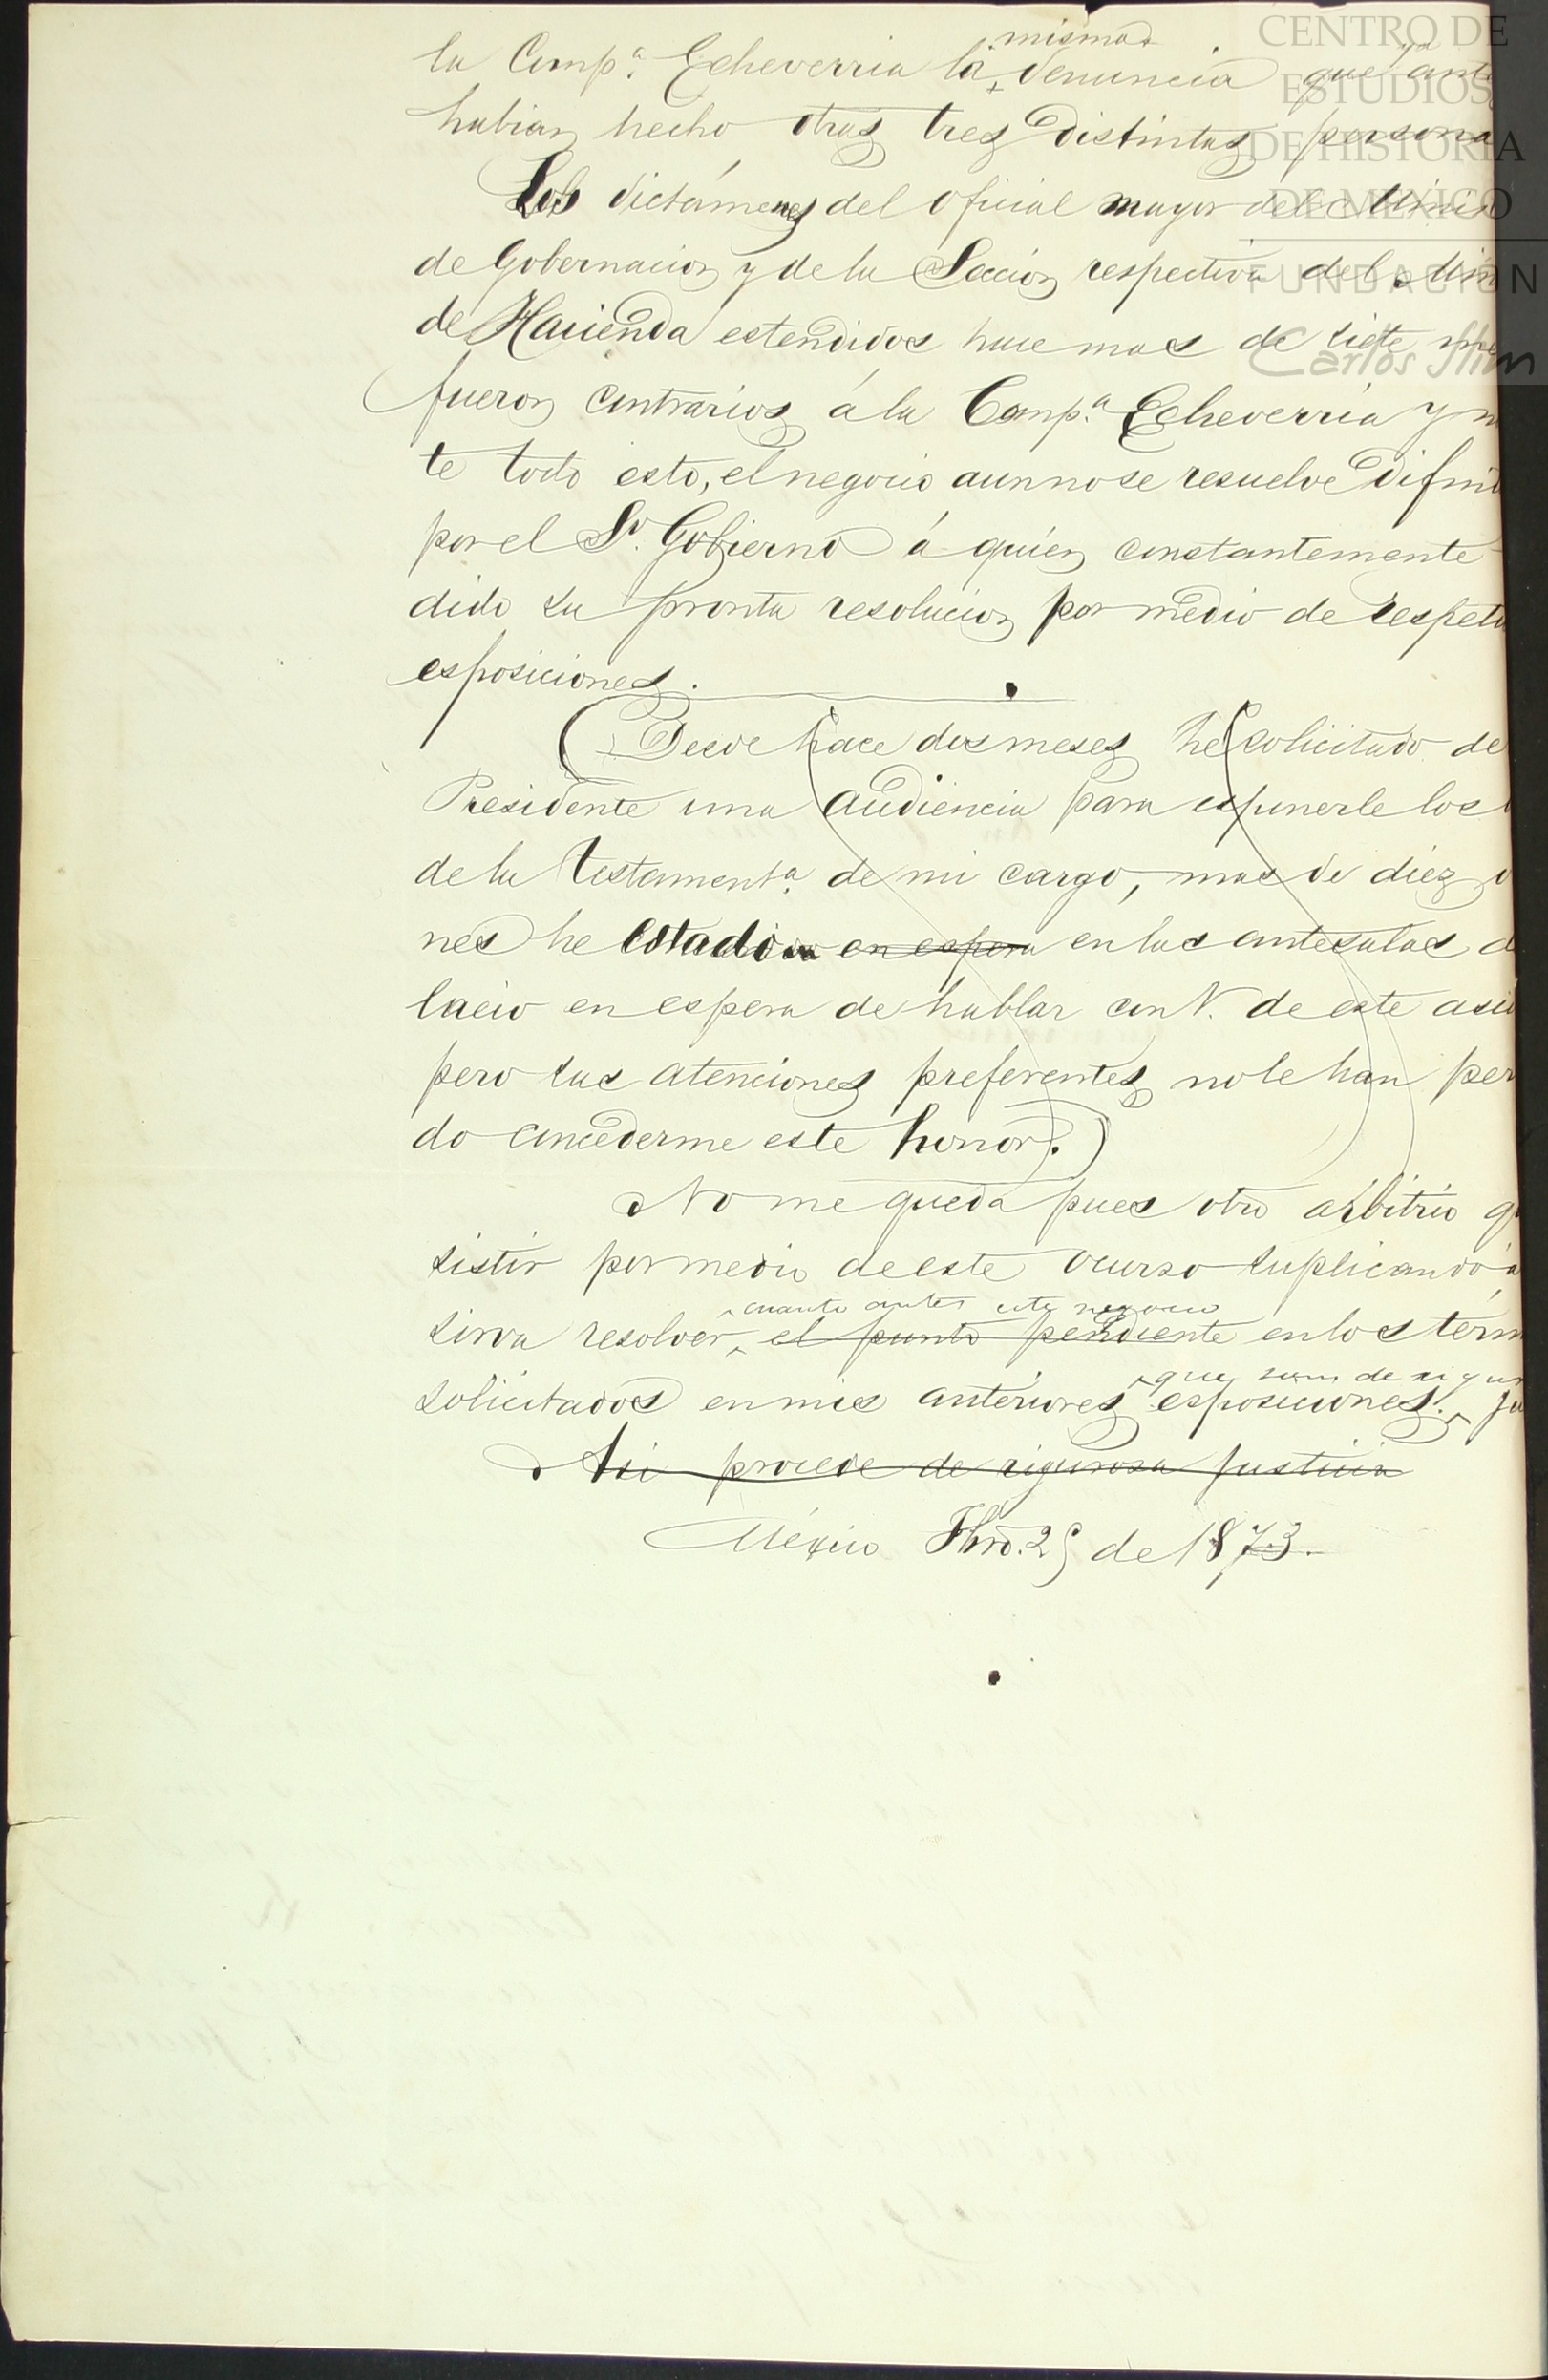 CENTRO DE
ESTUDIOS
DE HISTORIA
DE MEXICO
FUNDACION
Carlos Slim
mismas ya
la Comp.ª Echeverria la denuncia que ant
habian hecho otras tres distintas persona
Los dictámenes del Oficial mayor del Minis
de Gobernacion y de la Seccion respectiva del Min
de Hacienda estendidos hace mas de siete
fueron contrarios á la Comp.ª Echeverria y n
te todo esto, el negocio aun no se resuelve difini
por el S.º Gobierno á quien constantemente
dido su pronta resolucion por medio de respetu
esposiciones.
(Desde hace dos meses he solicitado de
Presidente una audiencia para esponerle los
de la testament.ª de mi cargo, mas de diez o
nes he estado en espera en las antesalas d
lacio en espera de hablar con V. de este asu
pero sus atenciones preferentes no le han per
do concederme este honor.)
No me queda pues otro arbitrio q
sistir por medio de este ocurso suplicando á
cuanto antes este negocio
sirva resolver el punto pendiente en los térm
que son de rigur
solicitados en mis anteriores esposiciones. ju
Asi procede de rigurosa justicia
México Fbro. 25 de 1873.